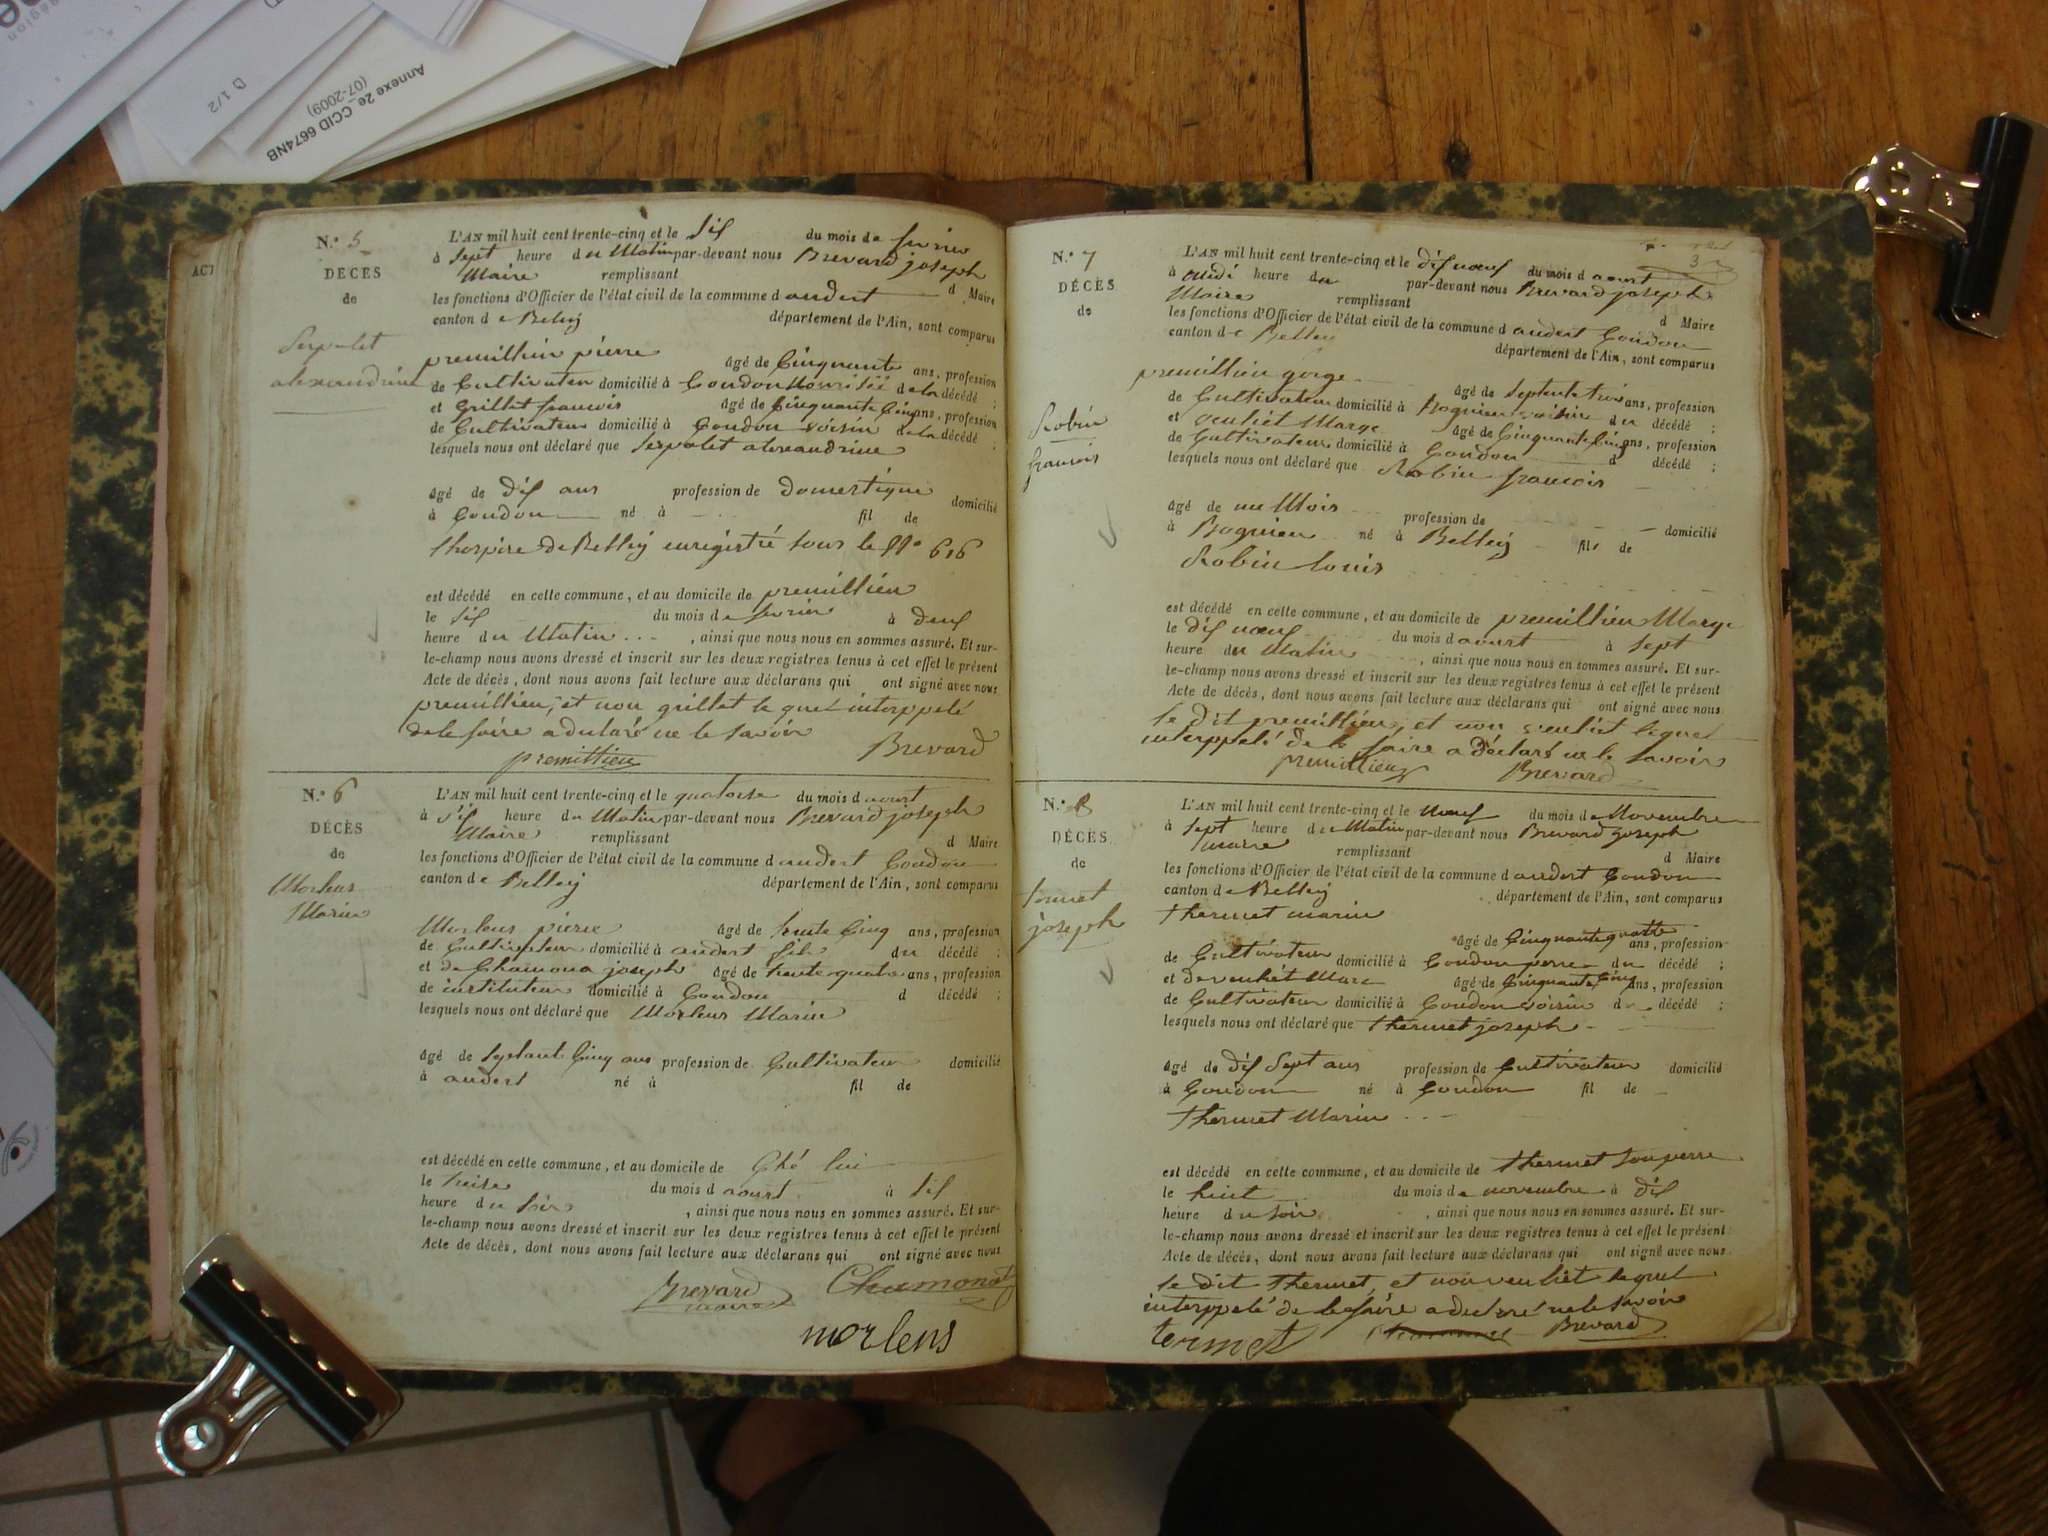 Annexe 2e_CCID 6674NB
(07-2009)
D 1/2
ACT
N.° 5
DÉCÈS
de
Serpolet
alexandrine
L'AN mil huit cent trente-cinq et le six du mois de fevrier
à sept heure du Matin par-devant nous Brevard joseph
Maire remplissant
les fonctions d'Officier de l'état civil de la commune d andert d Maire
canton de Belley département de l'Ain, sont comparus
premillieu pierre âgé de Cinquante ans, profession
de Cultivateur domicilié à Condon Nourisié de la décédé ;
et Grillet francois âgé de Cinquante Cinq ans, profession
de Cultivateur domicilié à Condon voisin de la décédé ;
lesquels nous ont déclaré que Serpolet alexandrine
âgé de dix ans profession de domestique domicilié
à Condon né à fil de
lhospice de Belley enregistré sous le N° 616
est décédé en cette commune, et au domicile de premillieu
le six du mois de fevrier à deux
heure du Matin , ainsi que nous nous en sommes assuré. Et sur-
le-champ nous avons dressé et inscrit sur les deux registres tenus à cet effet le présent
Acte de décès, dont nous avons fait lecture aux déclarans qui ont signé avec nous
premillieu, et non grillet le quel interppelé
de le faire a declaré ne le savoir
premillieu Brevard
N.° 6
DÉCÈS
de
Morlens
Marin
L'AN mil huit cent trente-cinq et le quatorse du mois d aoust
à six heure du Matin par-devant nous Brevard joseph
Maire remplissant
les fonctions d'Officier de l'état civil de la commune d andert Condon d Maire
canton de Belley département de l'Ain, sont comparus
Morlens pierre âgé de trente Cinq ans, profession
de Cultivateur domicilié à andert fils du décédé ;
et de Chamona joseph âgé de trente quatre ans, profession
de instituteur domicilié à Condon d décédé ;
lesquels nous ont déclaré que Morlens Marin
âgé de septante Cinq ans profession de Cultivateur domicilié
à andert né à fil de
est décédé en cette commune, et au domicile de Ché lui
le treise du mois d aoust à six
heure du soir , ainsi que nous nous en sommes assuré. Et sur-
le-champ nous avons dressé et inscrit sur les deux registres tenus à cet effet le présent
Acte de décès, dont nous avons fait lecture aux déclarans qui ont signé avec nous
Brevard Chamonat
maire
morlens
3
N.° 7
DÉCÈS
de
Robin
francois
L'AN mil huit cent trente-cinq et le dix noeuf du mois d aoust
à heure du par-devant nous Brevard joseph
Maire remplissant
les fonctions d'Officier de l'état civil de la commune d andert Condon d Maire
canton de Belley département de l'Ain, sont comparus
premillieu gorge âgé de septente trois ans, profession
de Cultivateur domicilié à Bognieu voisin du décédé ;
et veuliet Marge âgé de Cinquante Cinq ans, profession
de Cultivateur domicilié à Condon d décédé ;
lesquels nous ont déclaré que Robin francois
âgé de un Mois profession de domicilié
à Bognieu né à Belley fils de
Robin louis
est décédé en cette commune, et au domicile de premillieu Marge
le dix noeuf du mois d aoust à sept
heure du Matin , ainsi que nous nous en sommes assuré. Et sur-
le-champ nous avons dressé et inscrit sur les deux registres tenus à cet effet le présent
Acte de décès, dont nous avons fait lecture aux déclarans qui ont signé avec nous
le dit premillieu, et non veuliet lequel
interppelé de le faire a déclaré ne le savoir
premillieu Brevard
N.° 8
DÉCÈS
de
termet
joseph
L'AN mil huit cent trente-cinq et le noeuf du mois de Novembre
à sept heure du Matin par-devant nous Brevard joseph
maire remplissant
les fonctions d'Officier de l'état civil de la commune d andert Condon d Maire
canton de Belley département de l'Ain, sont comparus
thermet marin âgé de Cinquante quatre ans, profession
de Cultivateur domicilié à Condon perre du décédé ;
et de veuliét Marc âgé de Cinquante Cinq ans, profession
de Cultivateur domicilié à Condon voisin du décédé ;
lesquels nous ont déclaré que thermet joseph
âgé de dix Sept ans profession de Cultivateur domicilié
à Condon né à Condon fil de
thermet Marin
est décédé en cette commune, et au domicile de thermet son perre
le huit du mois de novembre à dix
heure du soir , ainsi que nous nous en sommes assuré. Et sur-
le-champ nous avons dressé et inscrit sur les deux registres tenus à cet effet le présent
Acte de décès, dont nous avons fait lecture aux déclarans qui ont signé avec nous
le dit thermet, et non veuliét lequel
interppelé de le faire a declaré ne le savoir
termet Brevard